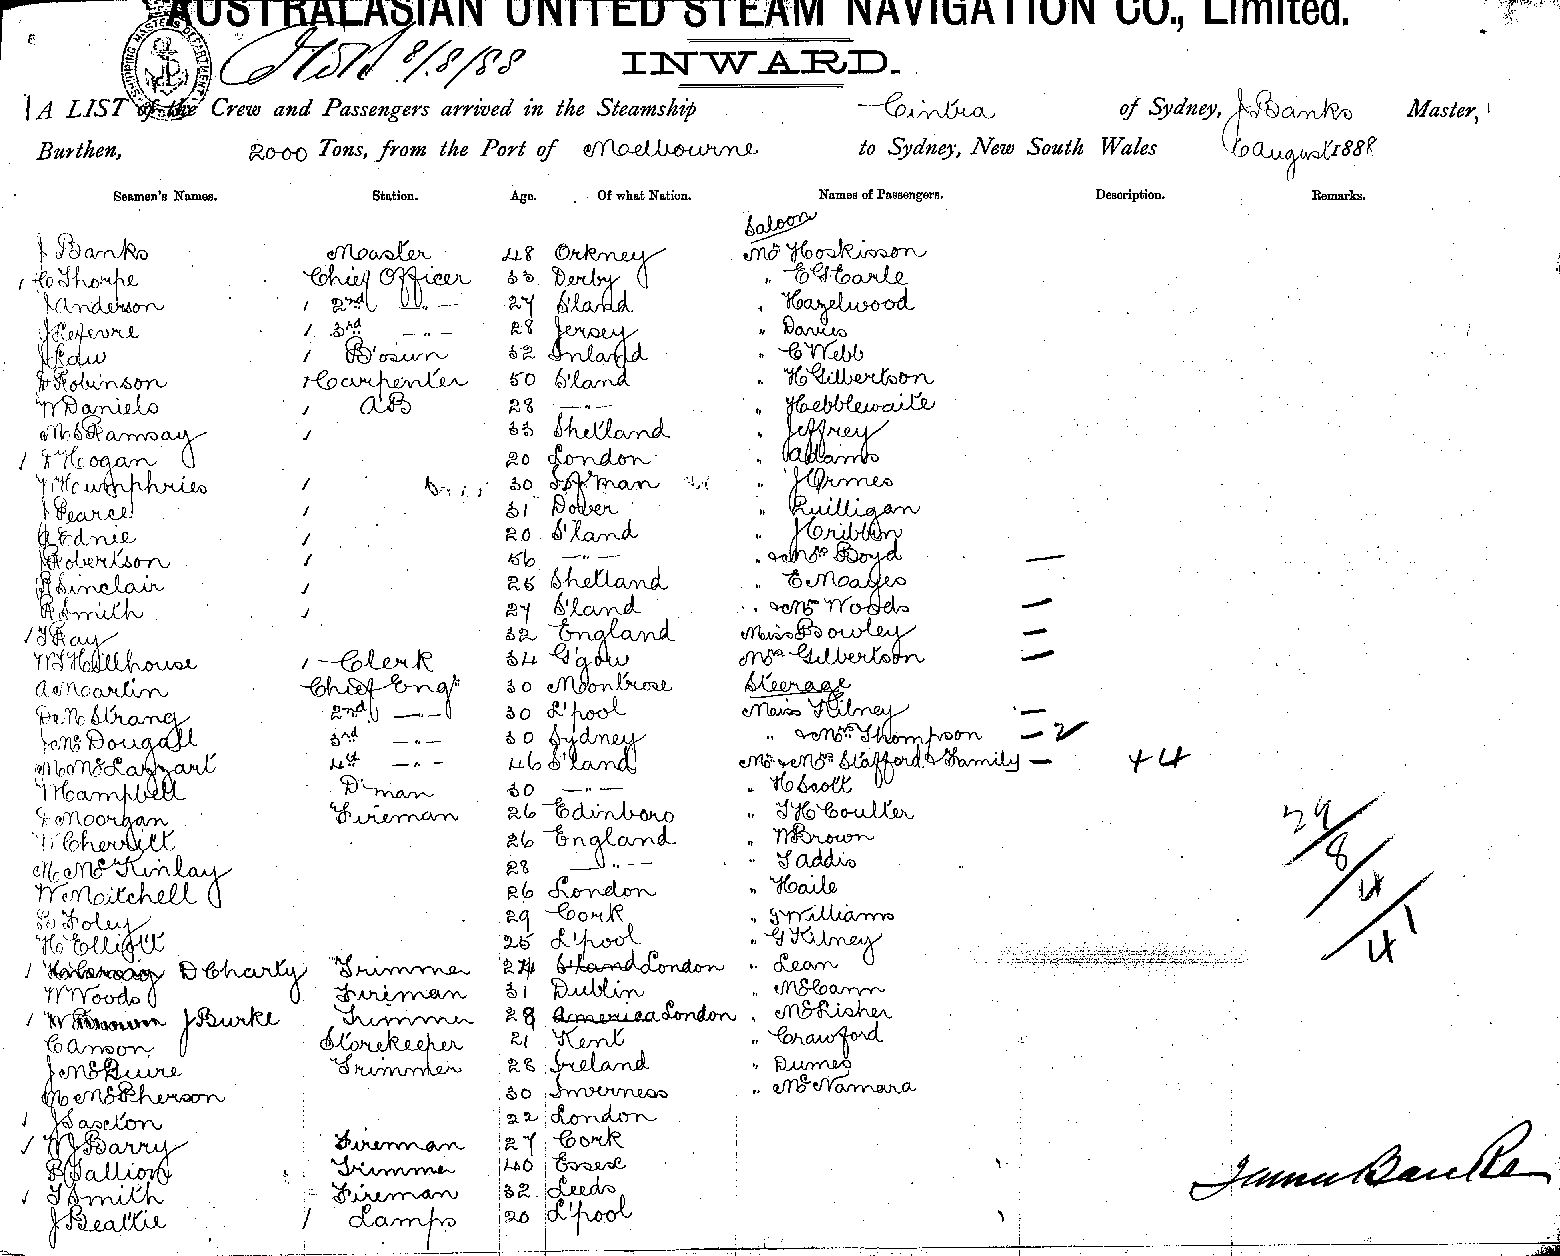 AUSTRALASIAN UNITED STEAM NAVIGATION CO., Limited.
8/8/88
INWARD.
A LIST of the Crew and Passengers arrived in the Steamship Cintra of Sydney, J Banks Master,
Burthen, 2000 Tons, from the Port of Melbourne to Sydney, New South Wales 6 August 1888
Seamen's Names. Station. Age. Of what Nation. Names of Passengers. Description. Remarks.
Saloon
J Banks Master 48 Orkney Mr Hoskisson
C Thorpe Chief Officer 33 Derby " E G Earle
J Anderson 2nd —"— 27 S'land " Hazelwood
J Lefevre 3rd —"— 28 Jersey " Davies
J Law Bosun 32 Inland " C Webb
Robinson Carpenter 50 S'land " H Gilbertson
W Daniels AB 28 —"— " Hebblewaite
Ramsay 33 Shetland " Jeffrey
Hogan 20 London " Adams
Humphries 30 I of man " J Ormes
J Pearce 31 Dover " Quilligan
A Ednie 20 S'land " J Cribbin
J Robertson 56 —"— " & Mrs Boyd —
R Sinclair 25 Shetland " E Moayes
R Smith 27 S'land " & Mrs Woods —
T Ray 32 England Miss Bowley —
Hillhouse Clerk 34 G'gow Mrs Gilbertson —
A Martin Chief Engr 30 Montrose Steerage
Strang 2nd —"— 30 L'pool Miss Kilney —
J McDougall 3rd —"— 30 Sydney " & Mrs Thompson — 2
M McLazzart 4th —"— 46 S'land Mr & Mrs Stafford & Family — + 4
Campbell D'man 30 —"— " H Scott
Morgan Fireman 26 Edinboro " T H Coulter 29
W Cherritt 26 England " W Brown 8
M McKinlay 28 —"— " T Addis 4
W Mitchell 26 London " Haile
Foley 29 Cork " J Williams 41
H Elliott 25 L'pool " G Kilney
D Charty Trimmer 24 S'land London " Lean
W Woods Fireman 31 Dublin " McCann
W J Burke Trimmer 28 America London " McLisher
C Anson Storekeeper 21 Kent " Crawford
J McGuire Trimmer 28 Ireland " Dumes
McPherson 30 Inverness " McNamara
J Saxton 22 London
W J Barry Fireman 27 Cork
R Gallion Trimmer 40 Essex
T Smith Fireman 32 Leeds
J Beattie Lamps 20 L'pool
James Banks